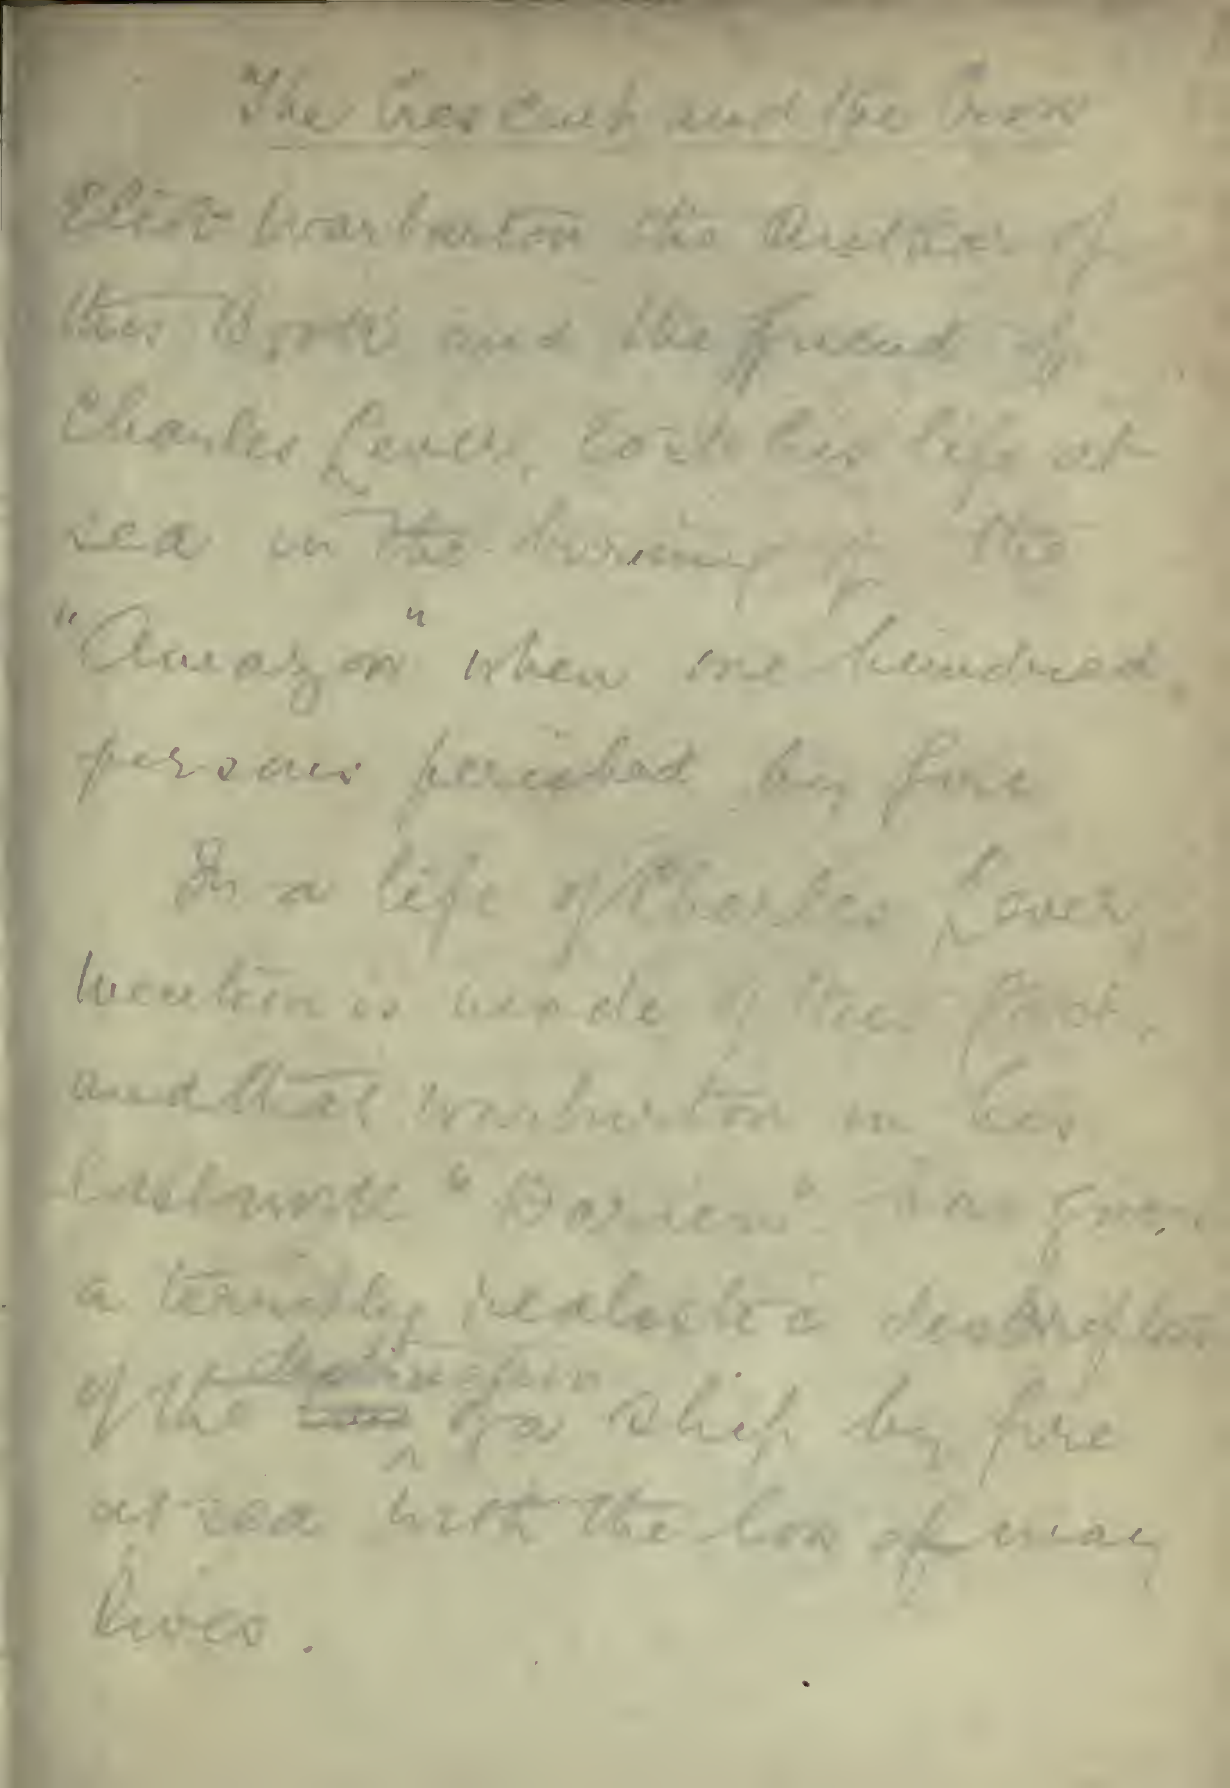 The Crescent and the Cross
Eliot Warburton the Author of
this Work and the friend of
Charles Lever, lost his life at
sea in the burning of the
"Amazon" when one hundred
persons perished by fire
In a life of Charles Lever,
mention is made of this fact,
and that Warburton in his
last work "Darien" has given
a terribly realistic description
of the destruction of a ship by fire
at sea with the loss of many
lives.